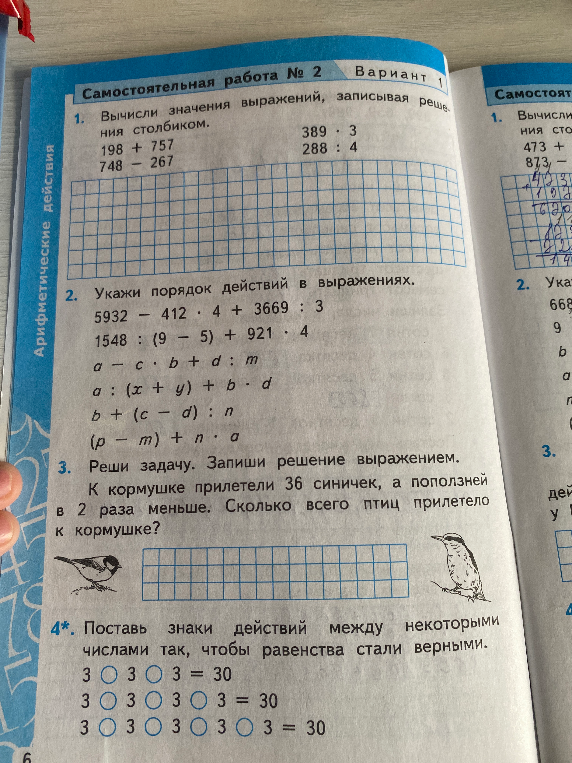 Самостоятельная работа № 2 Вариант 1
Арифметические действия
1. Вычисли значения выражений, записывая реше-
ния столбиком.
198 + 757 389 · 3
748 − 267 288 : 4
2. Укажи порядок действий в выражениях.
5932 − 412 · 4 + 3669 : 3
1548 : (9 − 5) + 921 · 4
a − c · b + d : m
a : (x + y) + b · d
b + (c − d) : n
(p − m) + n · a
3. Реши задачу. Запиши решение выражением.
К кормушке прилетели 36 синичек, а поползней
в 2 раза меньше. Сколько всего птиц прилетело
к кормушке?
4*. Поставь знаки действий между некоторыми
числами так, чтобы равенства стали верными.
3 ○ 3 ○ 3 = 30
3 ○ 3 ○ 3 ○ 3 = 30
3 ○ 3 ○ 3 ○ 3 ○ 3 = 30
6
Самостоят
1. Вычисли
ния сто
473 +
873 −
2. Ука
668
9
b
a
3.
дей
у